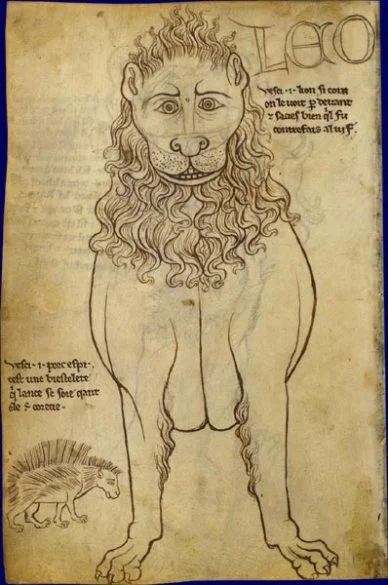 LEO
vesci · i · lion si com
on le voit p devant
⁊ sacies bien ql fu
contrefais al vif.
vesci · i · porc espi ·
cest une biestelete
q lance se soie qant
ele ē corecie ·